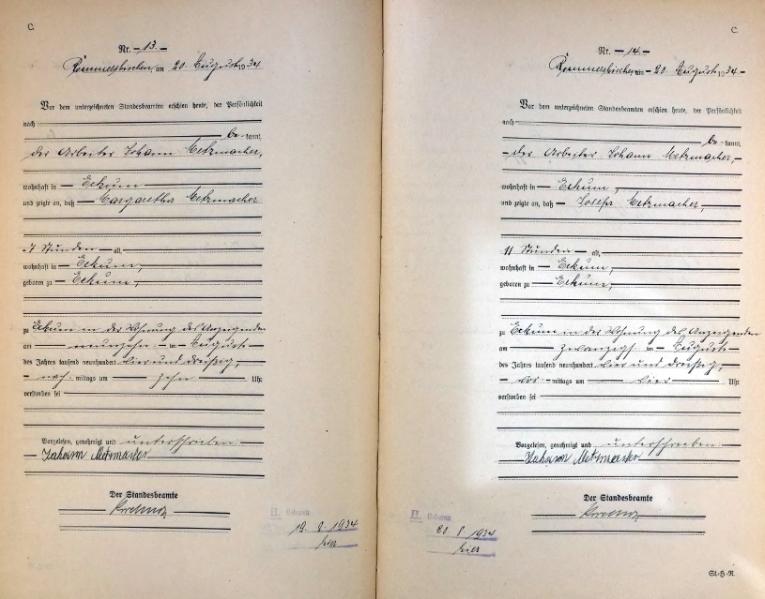 C.
Nr. 13.
Rommerskirchen, am 20. August 1934
Vor dem unterzeichneten Standesbeamten erschien heute, der Persönlichkeit
nach
be-kannt,
der Arbeiter Johann Metzmacher,
wohnhaft in Eckum
und zeigte an, daß Margaretha Metzmacher
Stunden alt,
wohnhaft in Eckum,
geboren zu Eckum,
zu Eckum in der Wohnung des Anzeigenden
am neunzehn August
des Jahres tausend neunhundert vier und dreißig,
nach mittags um zehn Uhr
verstorben sei
Vorgelesen, genehmigt und unterschrieben
Johann Metzmacher
Der Standesbeamte
19. 8. 1934
hier
C.
Nr. 14.
Rommerskirchen, am 20. August 1934
Vor dem unterzeichneten Standesbeamten erschien heute, der Persönlichkeit
nach
be-kannt,
der Arbeiter Johann Metzmacher,
wohnhaft in Eckum,
und zeigte an, daß Josefa Metzmacher,
11 Stunden alt,
wohnhaft in Eckum,
geboren zu Eckum,
zu Eckum in der Wohnung des Anzeigenden
am zwanzigst August
des Jahres tausend neunhundert vier und dreißig,
vor mittags um vier Uhr
verstorben sei
Vorgelesen, genehmigt und unterschrieben
Johann Metzmacher
Der Standesbeamte
1934
hier
St.-H.-R.